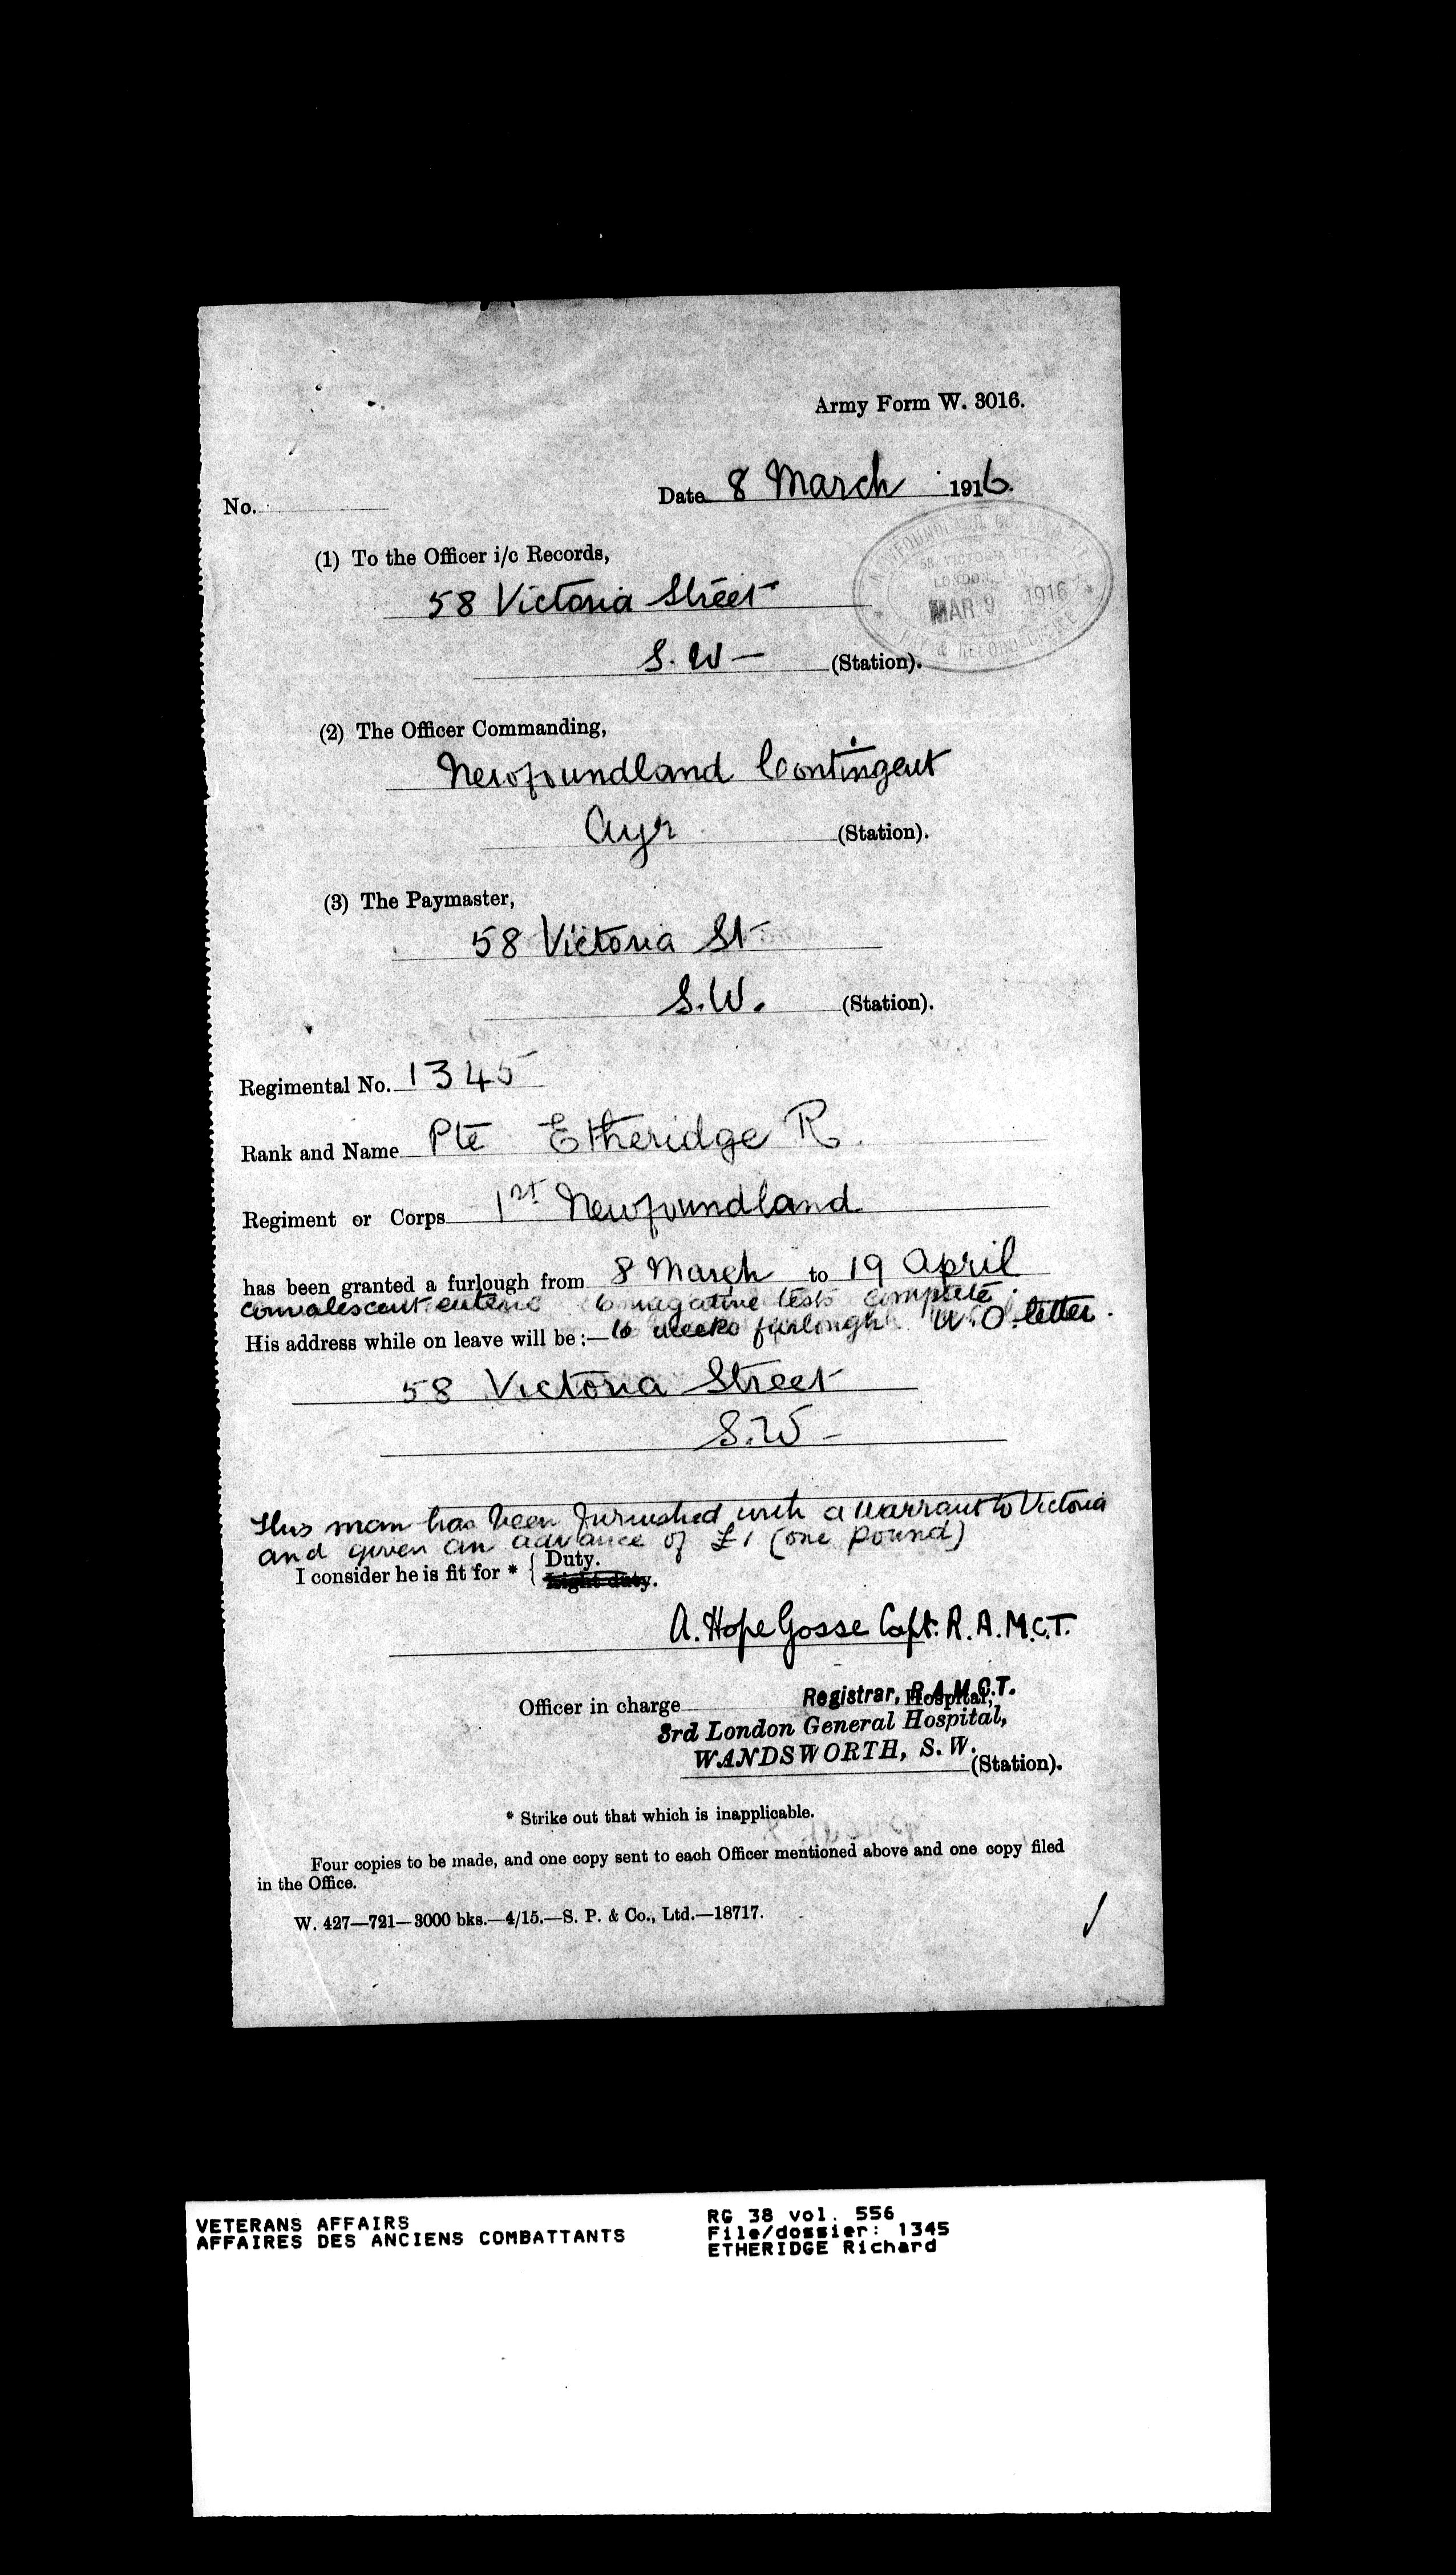 Army Form W. 3016.
No. Date 8 March 1916.
(1) To the Officer i/c Records,
58 Victoria Street
S. W — (Station).
NEWFOUNDLAND CONTINGENT
58, VICTORIA ST
LONDON, S.W.
MAR 9 1916
PAY & RECORD OFFICE
(2) The Officer Commanding,
Newfoundland Contingent
Ayr (Station).
(3) The Paymaster,
58 Victoria St
S.W. (Station).
Regimental No. 1345
Rank and Name Pte Etheridge R.
Regiment or Corps 1st Newfoundland
has been granted a furlough from 8 March to 19 April
convalescent enteric 6 negative tests complete.
His address while on leave will be :— 6 weeks furlough. W.O. letter.
58 Victoria Street
S.W —
This man has been furnished with a warrant to Victoria
and given an advance of £1 (one pound)
I consider he is fit for * { Duty.
Light duty.
A. Hope Gosse Capt. R.A.M.C.T.
Officer in charge Registrar, R.A.M.C.T. Hospital,
3rd London General Hospital,
WANDSWORTH, S.W. (Station).
* Strike out that which is inapplicable.
Four copies to be made, and one copy sent to each Officer mentioned above and one copy filed
in the Office.
W. 427—721—3000 bks.—4/15.—S. P. & Co., Ltd.—18717.
VETERANS AFFAIRS RG 38 vol. 556
AFFAIRES DES ANCIENS COMBATTANTS File/dossier: 1345
ETHERIDGE Richard